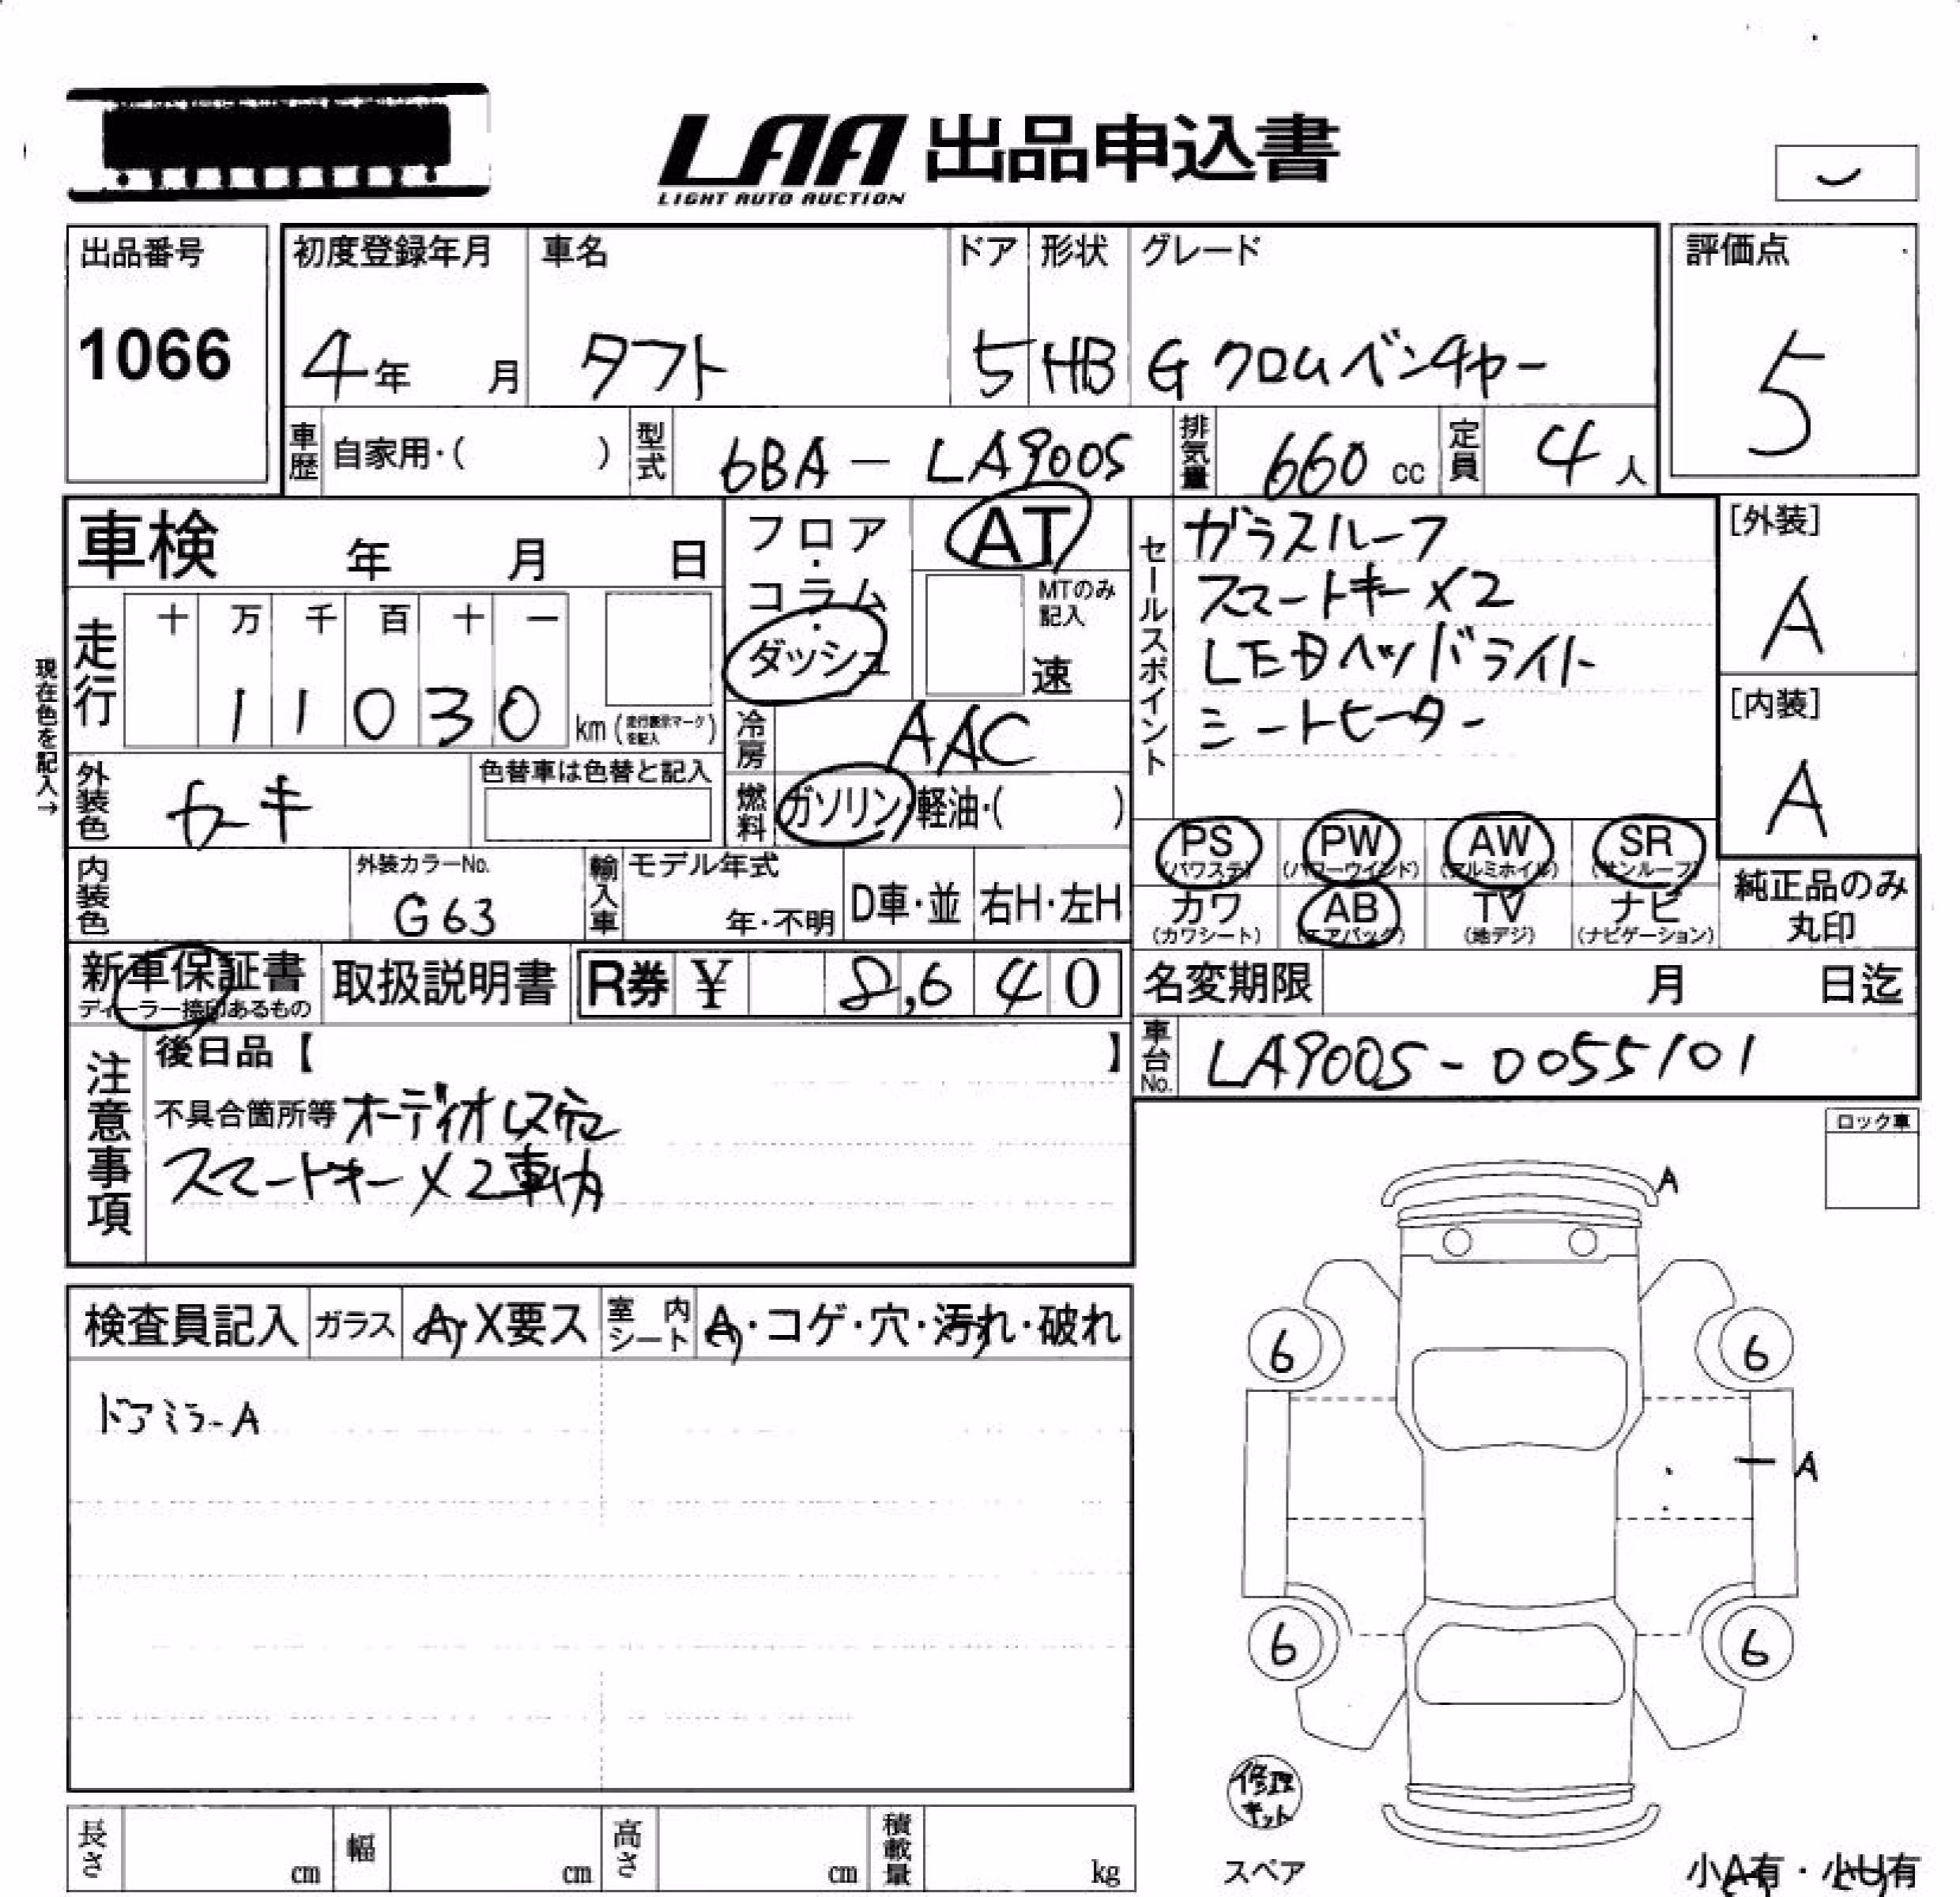 LAA 出品申込書
LIGHT AUTO AUCTION
出品番号
1066
初度登録年月
4年 月
車名
タフト
ドア
5
形状
HB
グレード
G クロムベンチャー
評価点
5
車歴 自家用・( )
型式 6BA - LA900S
排気量 660 cc
定員 4 人
車検 年 月 日
フロア・コラム・ダッシュ
AT
MTのみ記入
速
セールスポイント
ガラスルーフ
スマートキー×2
LEDヘッドライト
シートヒーター
[外装]
A
[内装]
A
現在色を記入→
走行
十 万 千 百 十 一
1 1 0 3 0 km (走行表示マークを記入)
冷房 AAC
外装色 カーキ
色替車は色替と記入
燃料 ガソリン・軽油・( )
PS (パワステ) PW (パワーウインド) AW (アルミホイル) SR (サンルーフ)
カワ (カワシート) AB (エアバック) TV (地デジ) ナビ (ナビゲーション)
純正品のみ丸印
内装色
外装カラーNo.
G63
輸入車
モデル年式
年・不明
D車・並
右H・左H
新車保証書
ディーラー捺印あるもの
取扱説明書
R券 ¥ 8,640
名変期限 月 日迄
車台No. LA900S-0055101
注意事項
後日品【 】
不具合箇所等 オーディオレス
スマートキー×2車内
ロック車
A
検査員記入 ガラス A・X要ス 室内シート A・コゲ・穴・汚れ・破れ
ドアミラーA
6 6
A
6 6
修理キット
スペア
小A有・小U有
長さ cm 幅 cm 高さ cm 積載量 kg